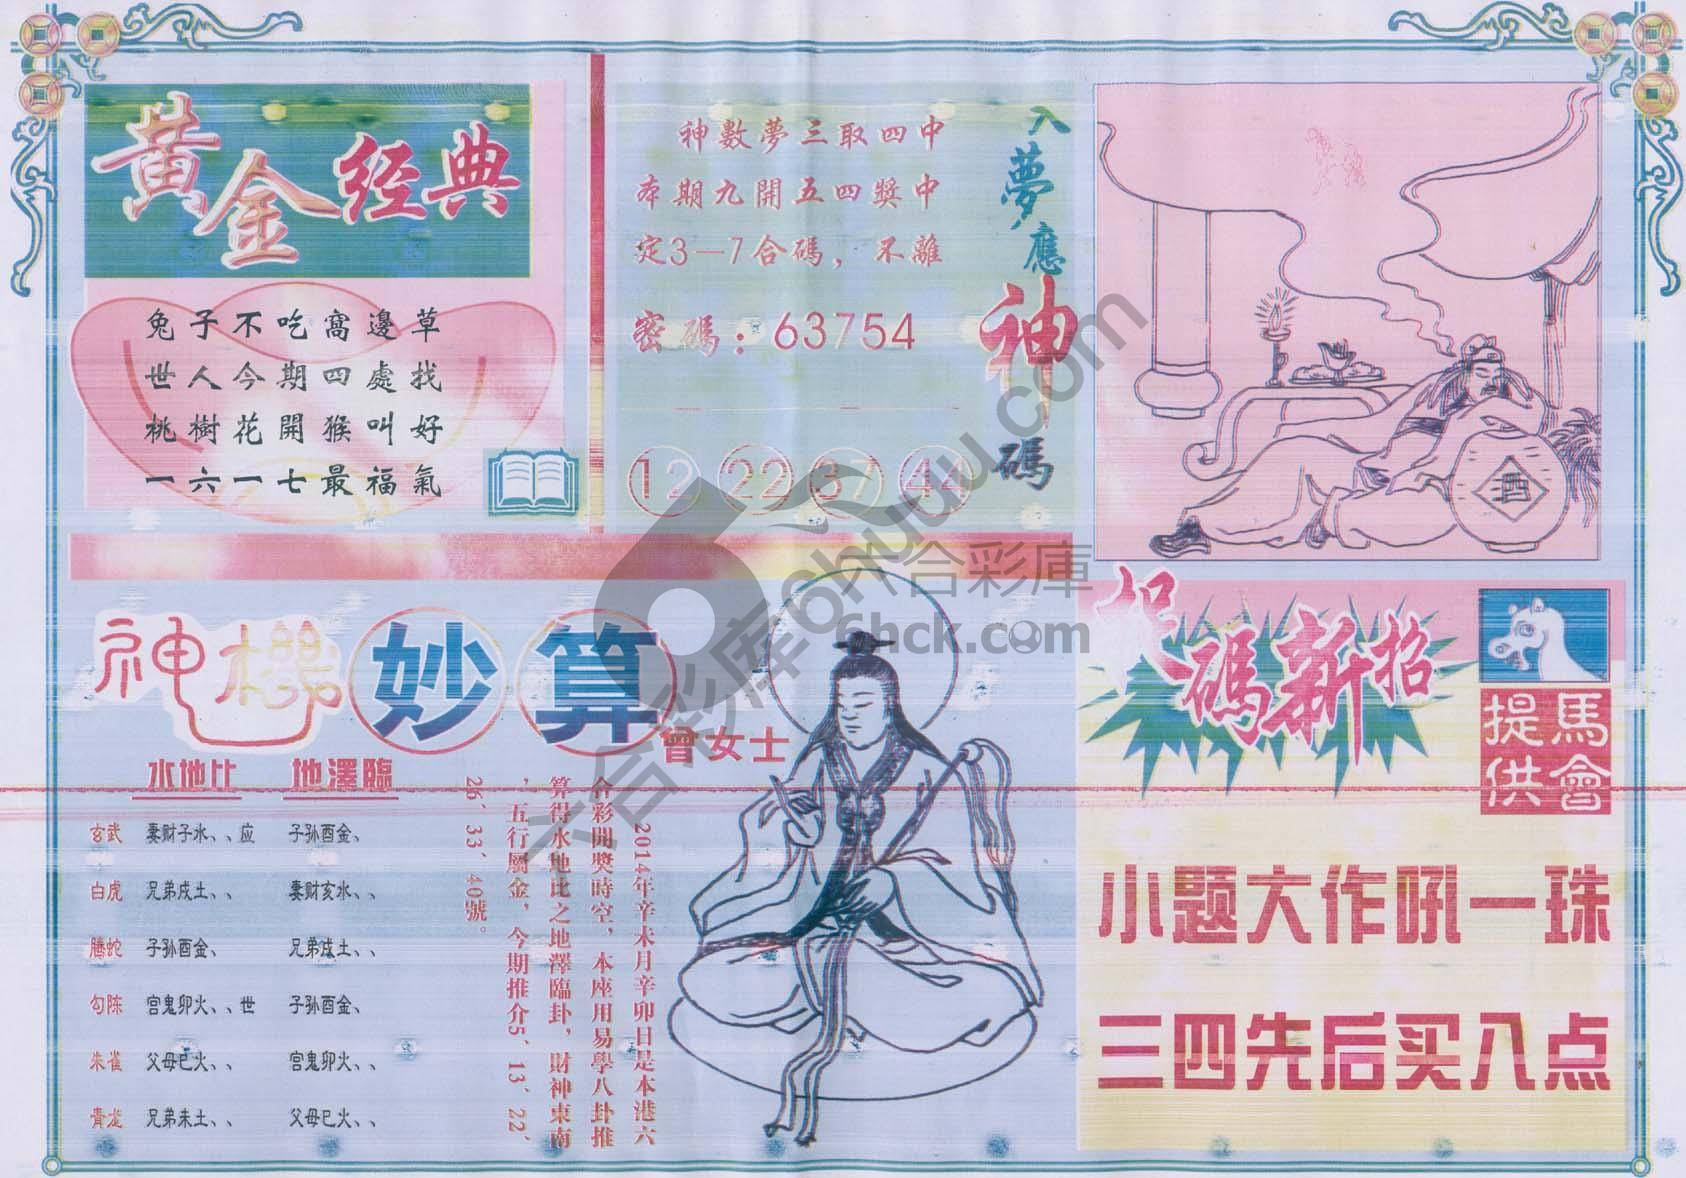 黄金经典
兔子不吃窩邊草
世人今期四處找
桃樹花開猴叫好
一六一七最福氣
神數夢三取四中
本期九開五四獎中
定3—7合碼，不離
密碼：63754
12 22 37 44
入夢應神碼
酒
神機妙算
曾女士
水地比 地澤臨
玄武 妻财子水、、应 子孙酉金、、
白虎 兄弟戌土、、 妻财亥水、、
腾蛇 子孙酉金、 兄弟戌土、、
勾陈 官鬼卯火、、世 子孙酉金、
朱雀 父母巳火、、 官鬼卯火、、
青龙 兄弟未土、、 父母巳火、
2014年辛未月辛卯日是本港六
合彩開獎時空，本座用易學八卦推
算得水地比之地澤臨卦，財神東南
，五行屬金，今期推介5、13、22、
26、33、40號。
捉碼新招
馬會
提供
小题大作吼一珠
三四先后买入点
六合彩库6huuu.com
六合彩庫
6hck.com